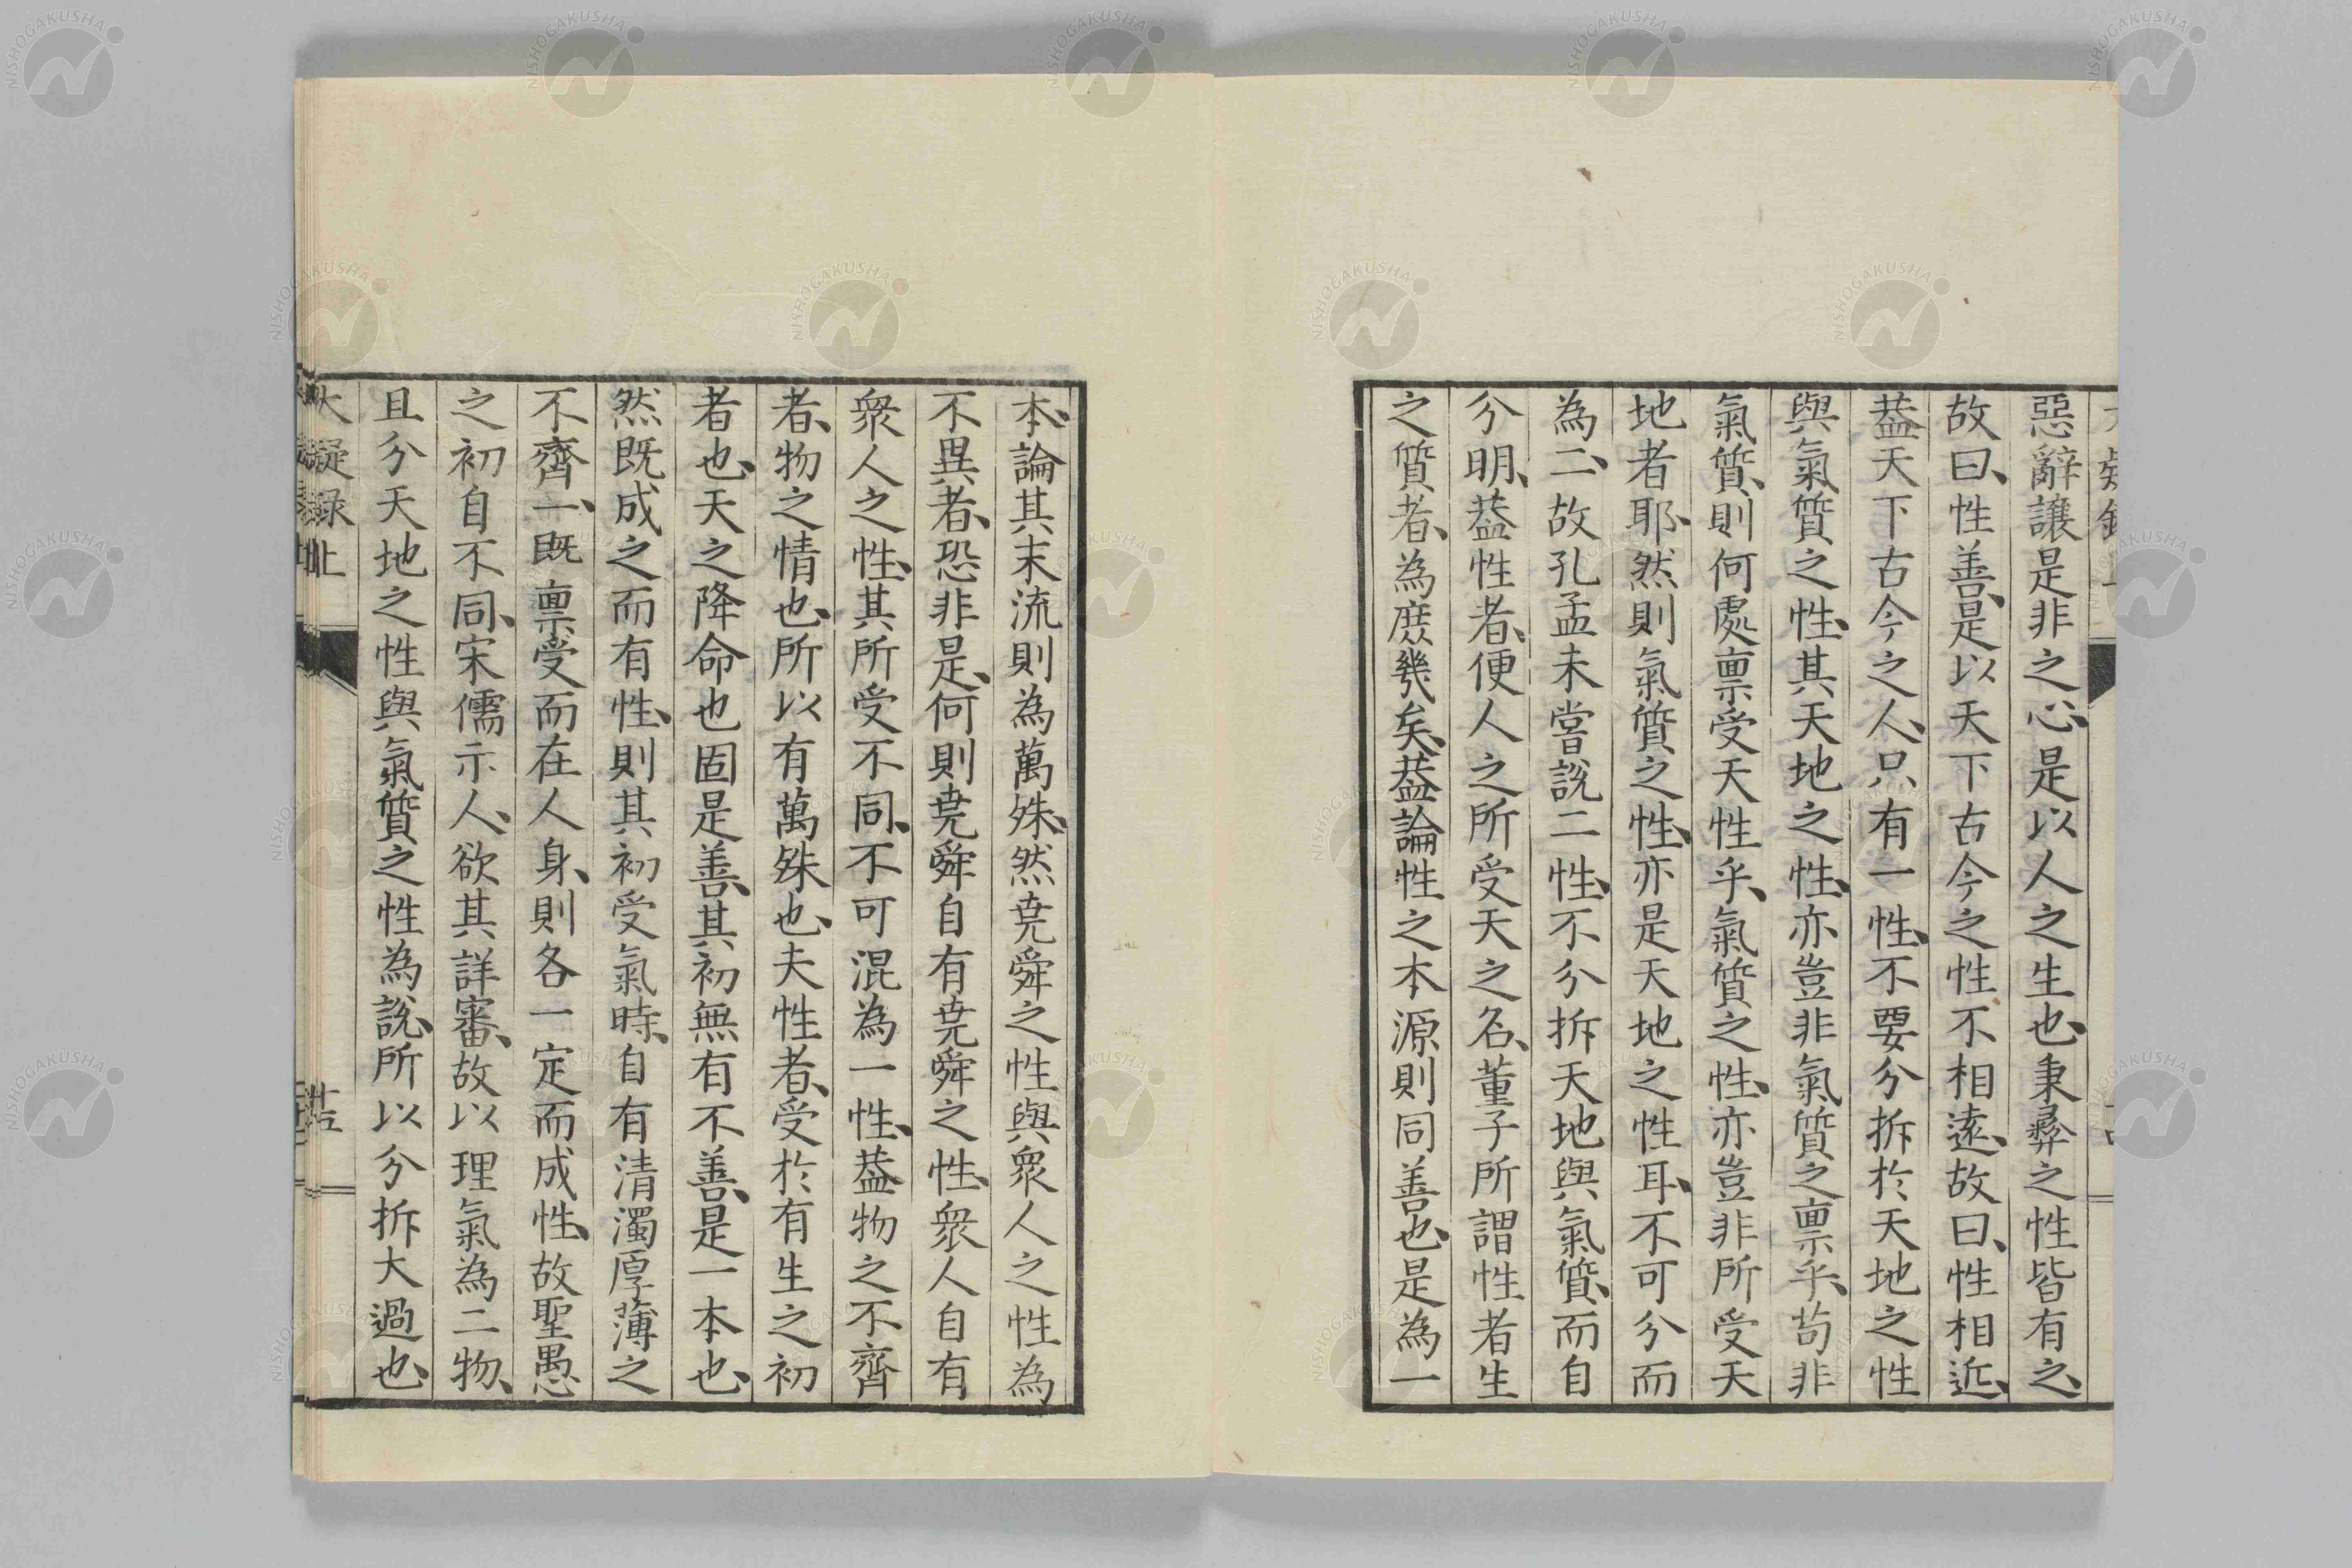 惡辭讓是非之心、是以人之生也、秉彞之性皆有之、
故曰、性善、是以天下古今之性不相遠、故曰、性相近、
葢天下古今之人、只有一性、不要分拆於天地之性
與氣質之性、其天地之性、亦豈非氣質之禀乎、苟非
氣質、則何處禀受天性乎、氣質之性、亦豈非所受天
地者耶、然則氣質之性、亦是天地之性耳、不可分而
為二、故孔孟未嘗說二性、不分拆天地與氣質、而自
分明、葢性者、便人之所受天之名、董子所謂性者生
之質者、為庶幾矣、葢論性之本源則同善也、是為一
本、論其末流則為萬殊、然堯舜之性與衆人之性為
不異者、恐非是、何則堯舜自有堯舜之性、衆人自有
衆人之性、其所受不同、不可混為一性、葢物之不齊
者、物之情也、所以有萬殊也、夫性者、受於有生之初
者也、天之降命也固是善、其初無有不善、是一本也、
然既成之而有性、則其初受氣時、自有清濁厚薄之
不齊、一既禀受而在人身、則各一定而成性、故聖愚
之初自不同、宋儒示人、欲其詳審、故以理氣為二物、
且分天地之性與氣質之性為說、所以分拆大過也、
大疑録上
NISHOGAKUSHA